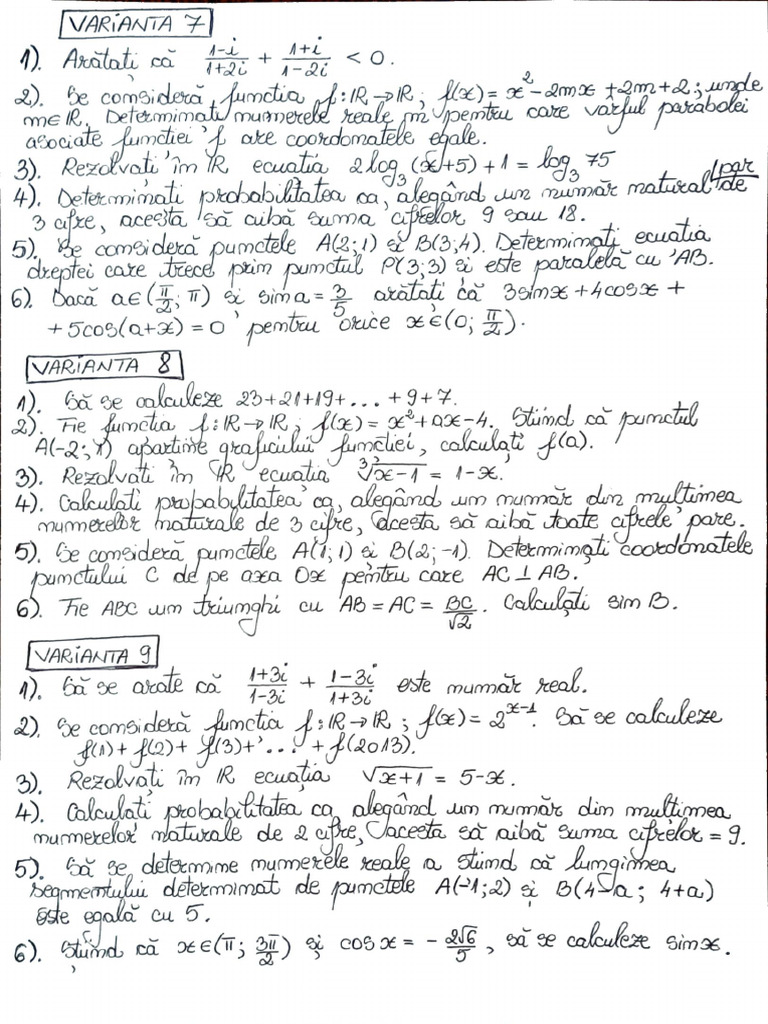 VARIANTA 7
1). Arătați că (1-i)/(1+2i) + (1+i)/(1-2i) < 0.
2). Se consideră funcția f: IR → IR ; f(x) = x² - 2mx + 2m + 2 ; unde
m∈IR. Determinați numerele reale m pentru care vârful parabolei
asociate funcției f are coordonatele egale.
3). Rezolvați în IR ecuația 2log₃(x+5) + 1 = log₃ 75
4). Determinați probabilitatea ca, alegând un număr natural par de
3 cifre, acesta să aibă suma cifrelor 9 sau 18.
5). Se consideră punctele A(2;1) și B(3;4). Determinați ecuația
dreptei care trece prin punctul P(3;3) și este paralelă cu AB.
6). Dacă a∈(π/2; π) și sin a = 3/5 arătați că 3sinx + 4cosx +
+ 5cos(a+x) = 0 pentru orice x∈(0; π/2).
VARIANTA 8
1). Să se calculeze 23+21+19+...+9+7.
2). Fie funcția f: IR → IR ; f(x) = x² + ax - 4. Știind că punctul
A(-2; 1) aparține graficului funcției, calculați f(a).
3). Rezolvați în IR ecuația ∛(x-1) = 1-x.
4). Calculați probabilitatea ca, alegând un număr din mulțimea
numerelor naturale de 3 cifre, acesta să aibă toate cifrele pare.
5). Se consideră punctele A(1;1) și B(2;-1). Determinați coordonatele
punctului C de pe axa Ox pentru care AC ⊥ AB.
6). Fie ABC un triunghi cu AB = AC = BC/√2. Calculați sin B.
VARIANTA 9
1). Să se arate că (1+3i)/(1-3i) + (1-3i)/(1+3i) este număr real.
2). Se consideră funcția f: IR → IR ; f(x) = 2^(x-1). Să se calculeze
f(1) + f(2) + f(3) + ... + f(2013).
3). Rezolvați în IR ecuația √(x+1) = 5-x.
4). Calculați probabilitatea ca, alegând un număr din mulțimea
numerelor naturale de 2 cifre, aceeta să aibă suma cifrelor = 9.
5). Să se determine numerele reale a știind că lungimea
segmentului determinat de punctele A(-1;2) și B(4-a; 4+a)
este egală cu 5.
6). Știind că x∈(π; 3π/2) și cos x = - 2√6/5, să se calculeze sinx.